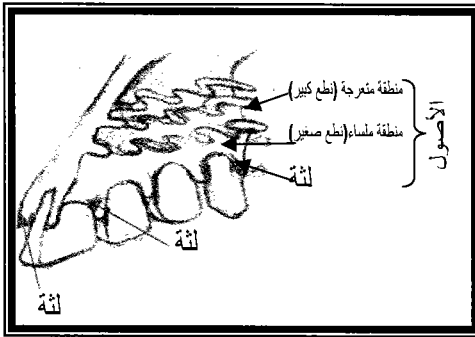 منطقة متعرجة (نطع كبير)
منطقة ملساء(نطع صغير)
الأصول
لثة
لثة
لثة